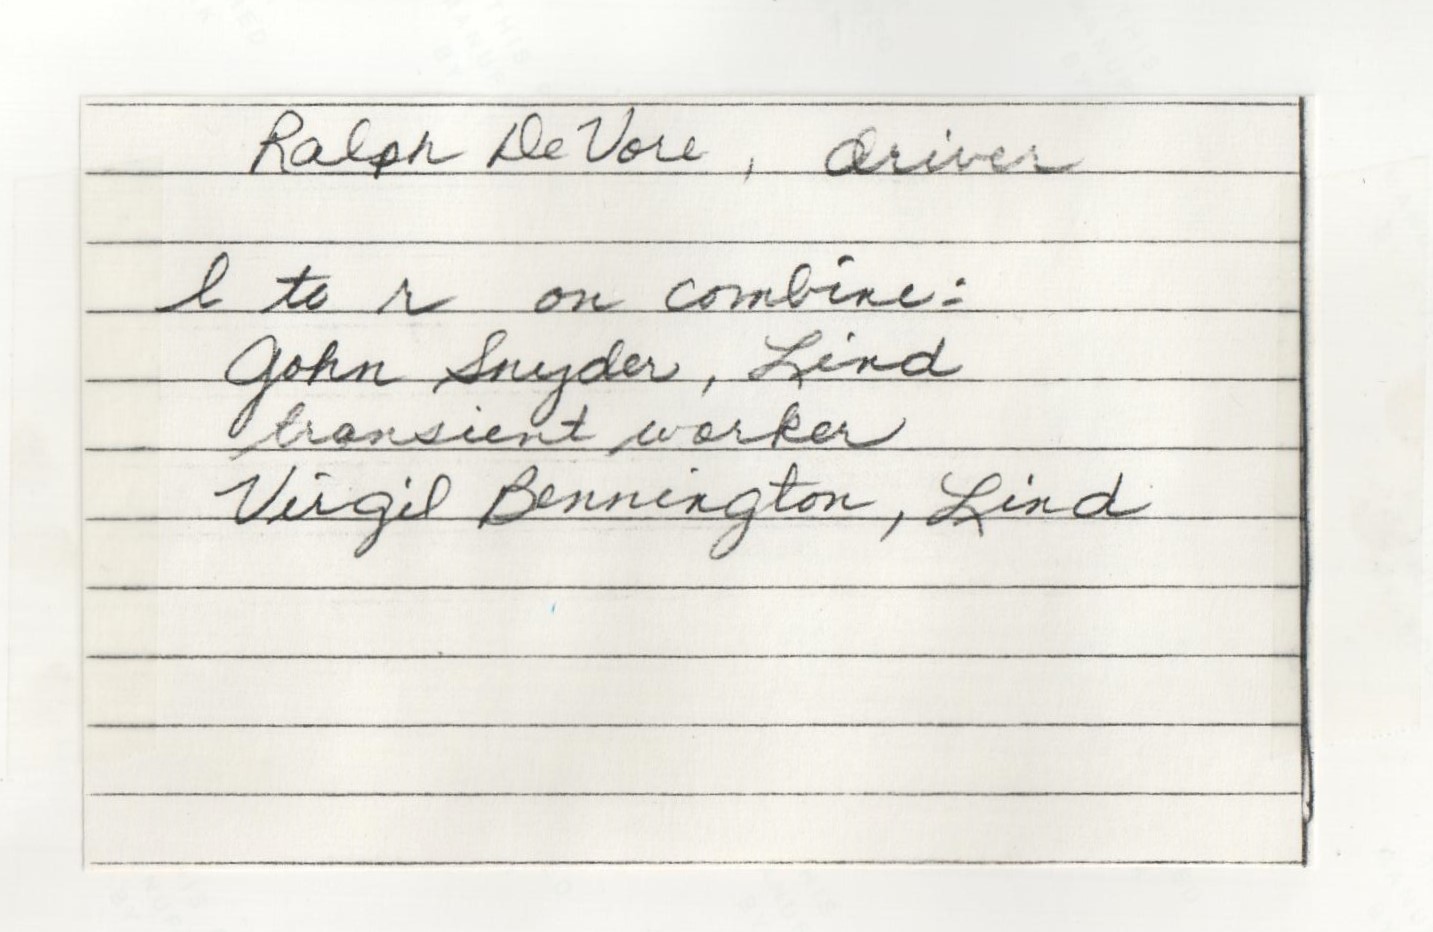 Ralph DeVore, driver
l to r on combine:
John Snyder, Lind
transient worker
Virgil Bennington, Lind